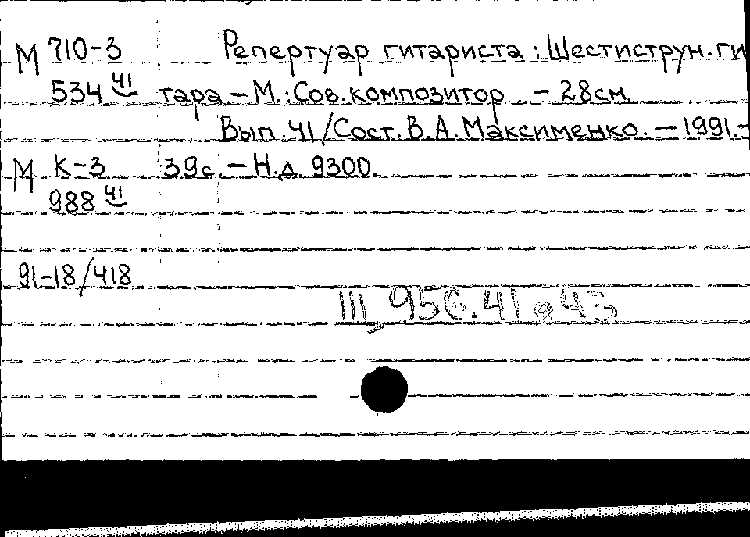 М 710-3 Репертуар гитариста : Шестиструн. ги
534 41 тара – М.: Сов. композитор – 28см.
Вып. 41 / Сост. В. А. Максименко. – 1991. –
М К-3 39с. – Н.д. 9300.
988 41
91-18/418
III 956.41